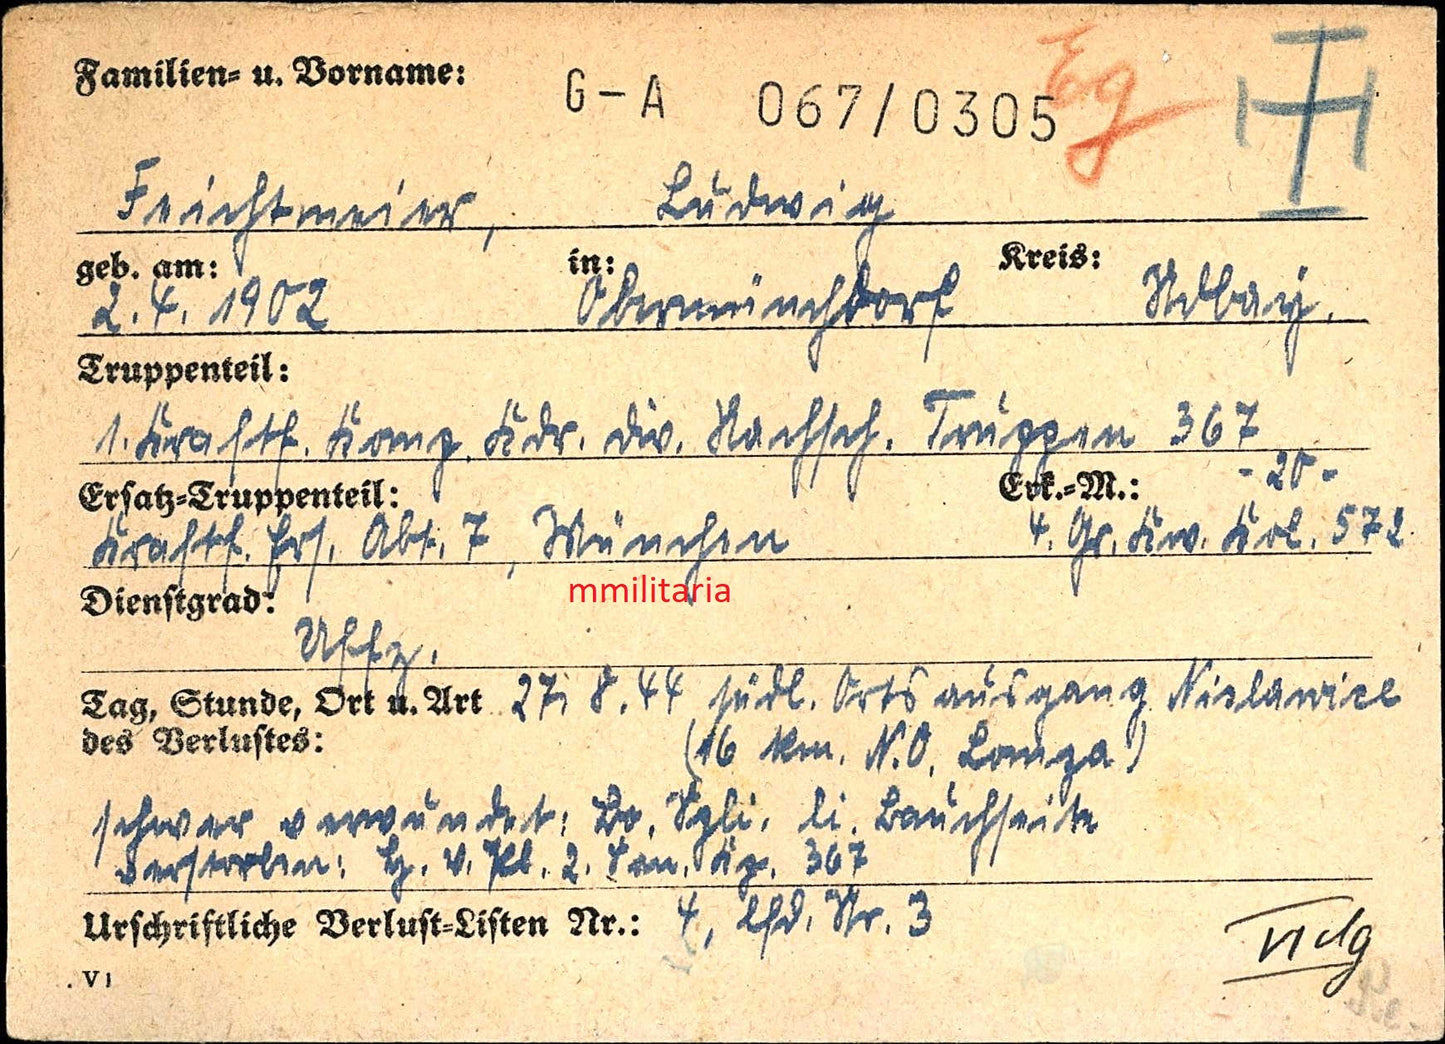 Familien- u. Vorname:
G-A 067/0305 Eg
Feichtmeier, Ludwig
geb. am: in: Kreis:
2.4.1902 Obermünchdorf Ndbay.
Truppenteil:
1. Kraftf. Komp. Kdr. Div. Nachsch. Truppen 367
Ersatz-Truppenteil: Erk.-M.: -20-
Kraftf. Ers. Abt. 7, München 4. Gr. Kw. Kol. 572
mmilitaria
Dienstgrad:
Uffz.
Tag, Stunde, Ort u. Art 27.8.44 südl. Ortsausgang
des Verlustes: (16 km. N.O. Lomza)
schwer verwundet: Bo. Spli. li. Bauchseite
verstorben: H.V.Pl. 2. San. Kp. 367
Urschriftliche Verlust-Listen Nr.: 4, lfd. Nr. 3
V 1